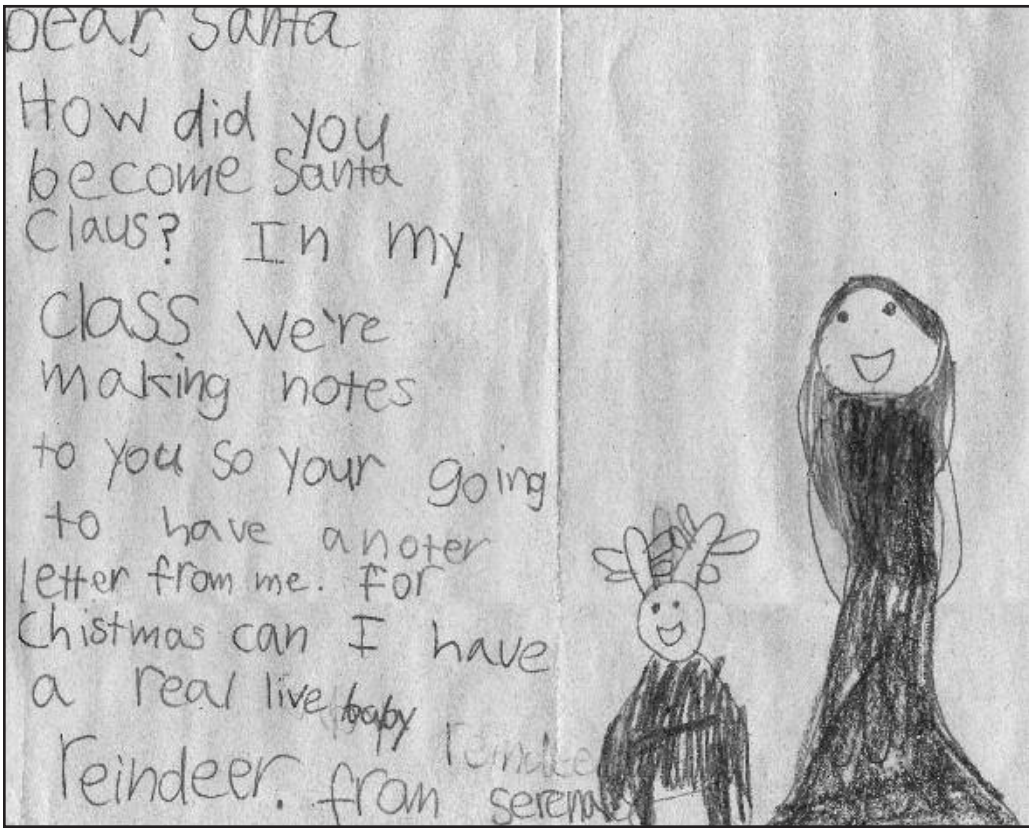 Dear, Santa
How did you
become Santa
Claus? In my
class we're
making notes
to you so your going
to have anoter
letter from me. For
Chistmas can I have
a real live baby
reindee
reindeer. from serena